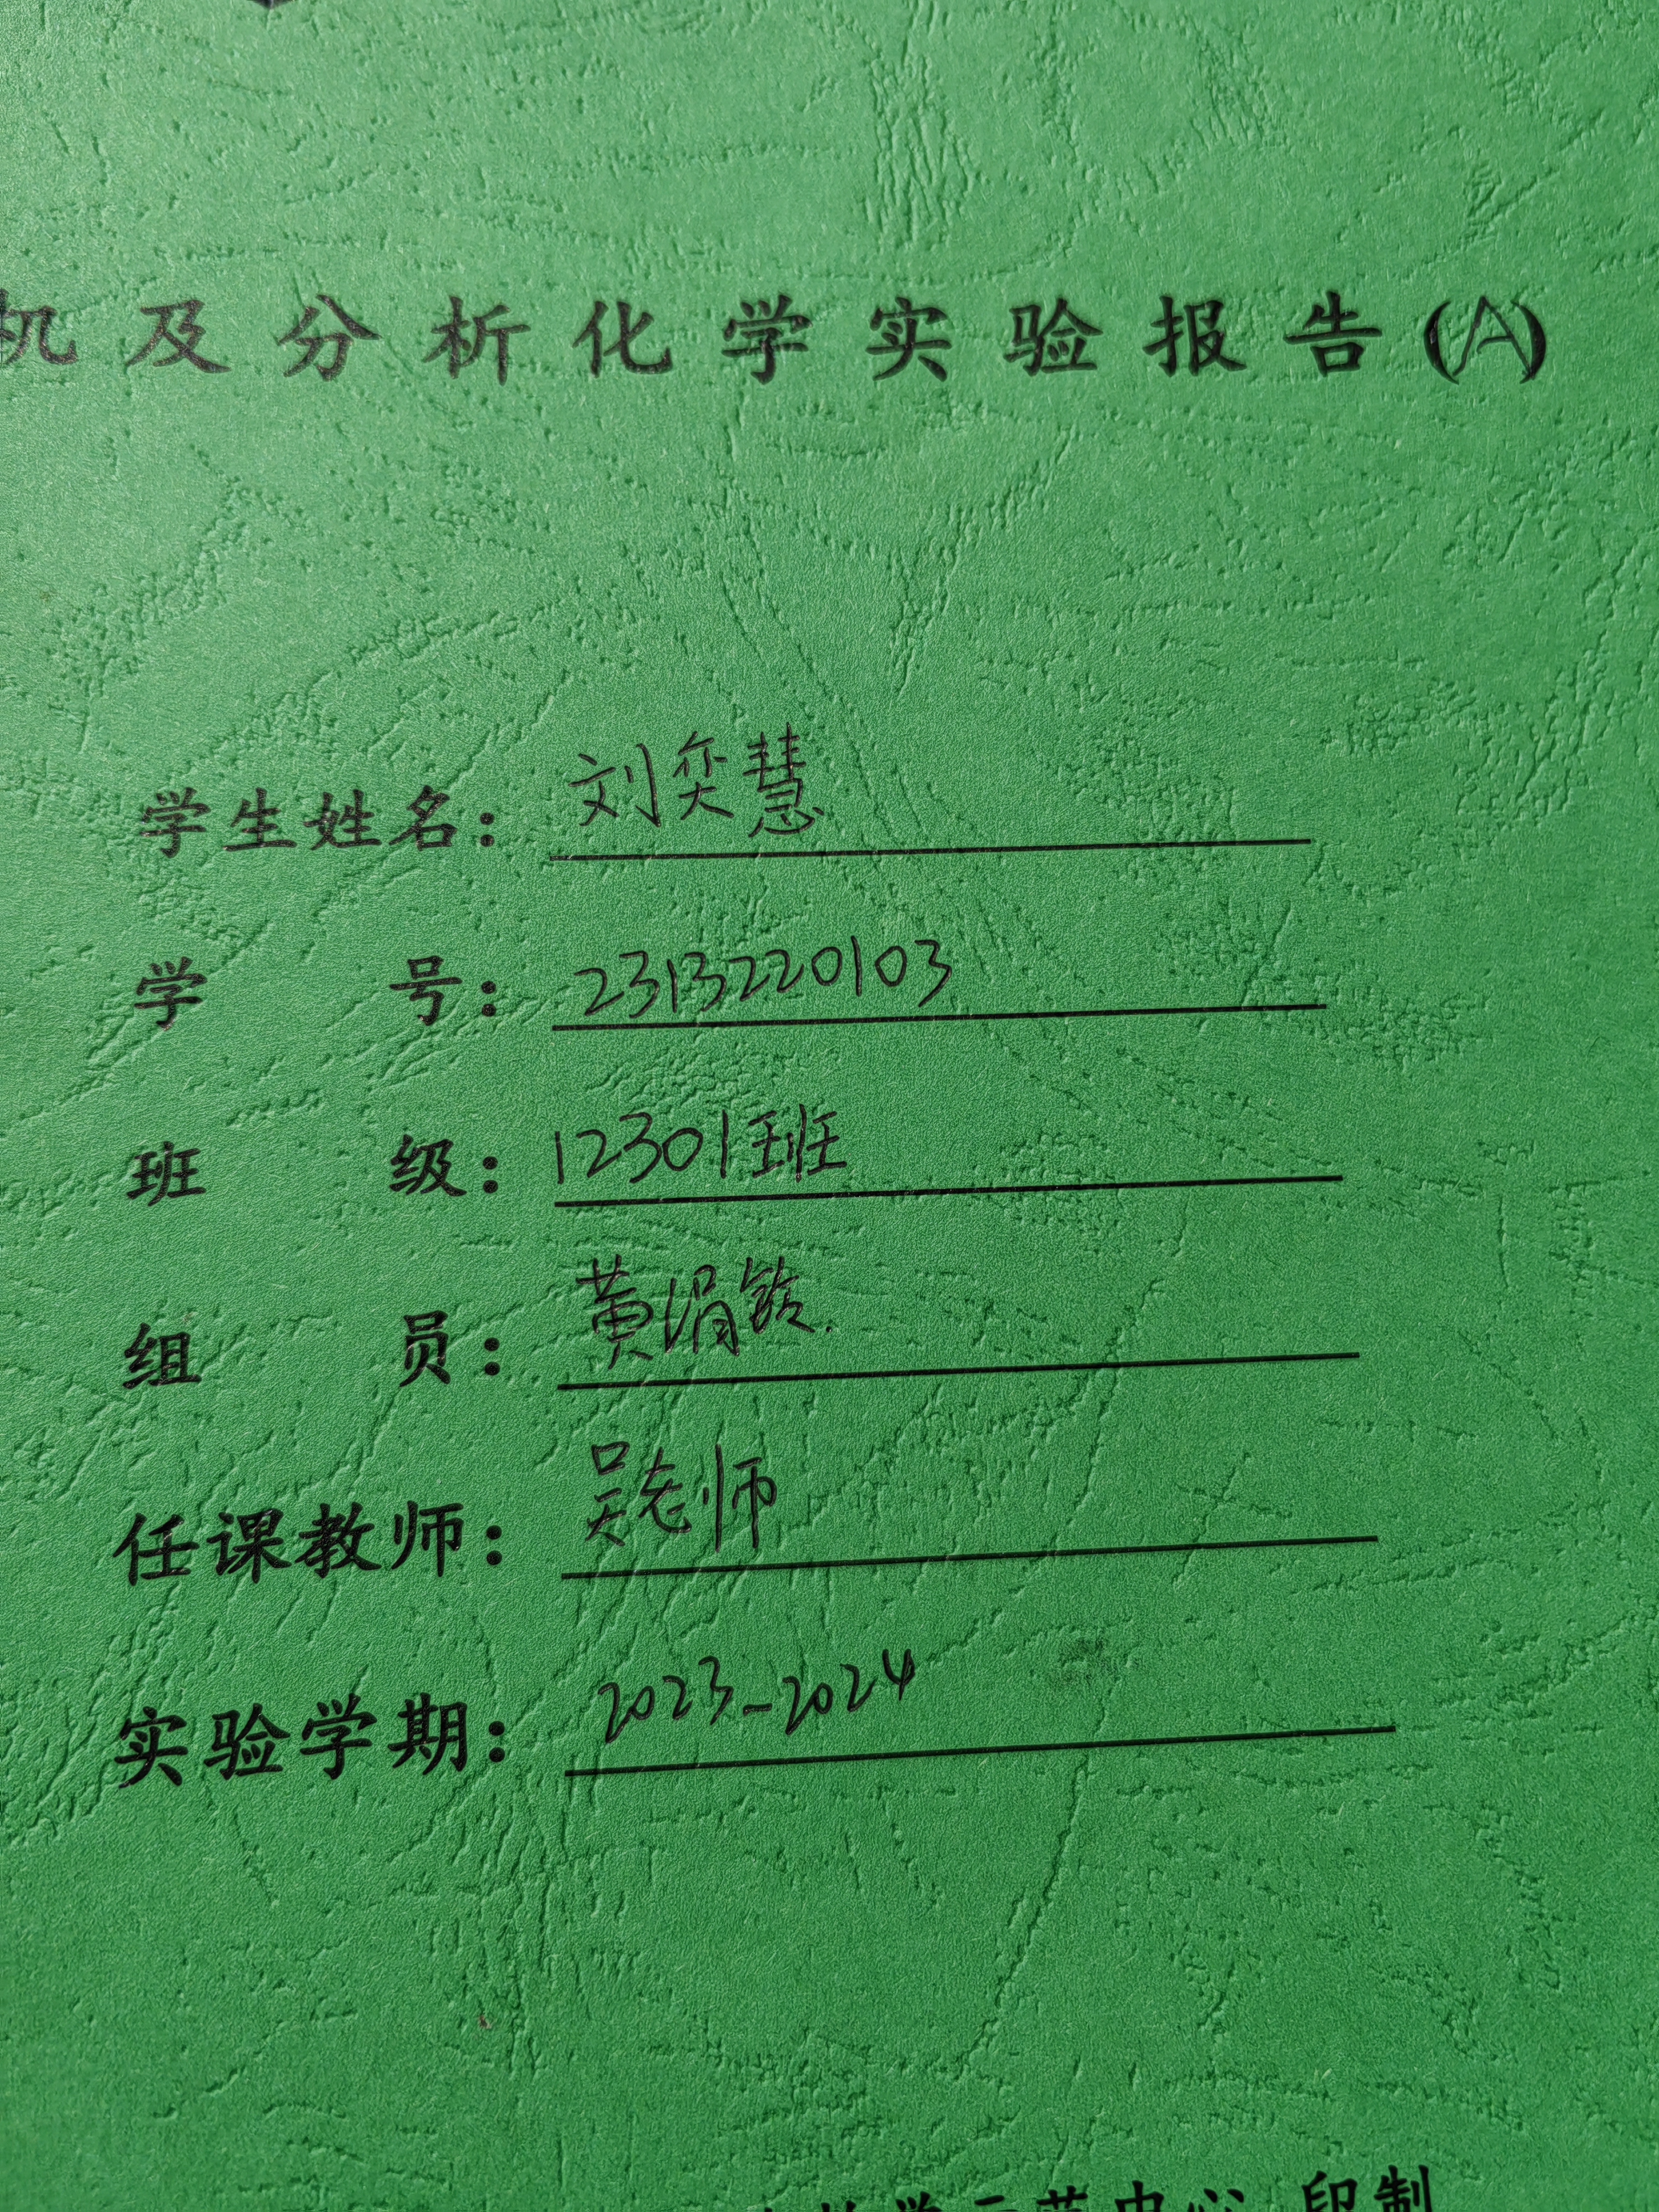 机及分析化学实验报告(A)
学生姓名：刘奕慧
学号：2313220103
班级：12301班
组员：黄涓铃
任课教师：吴老师
实验学期：2023-2024
中心 印制